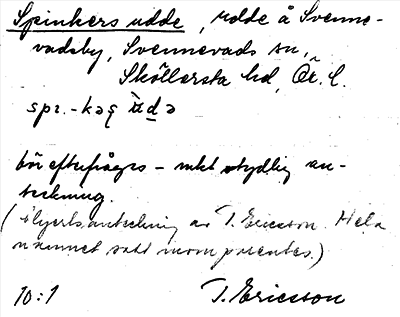 Spinkers udde, udde å Svenne-
vadsby, Svennevads sn,
Sköllersta hd, Ör. l.
spr.-kəʂ ùdə
bör efterfrågas – mkt otydlig an-
teckning.
(blyertsanteckning av T. Ericsson. Hela
namnet satt inom parentes.)
10:1 T. Ericsson